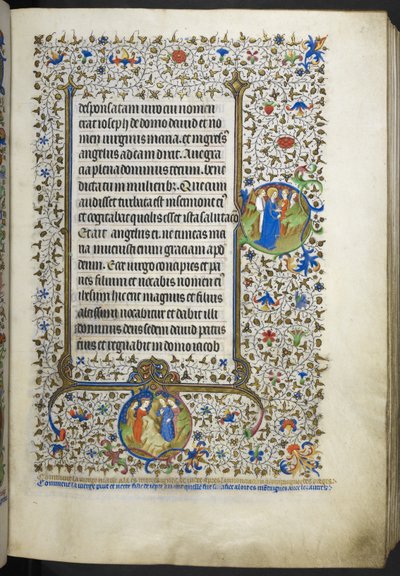 desponsatam uiro cui nomen
erat ioseph de domo dauid et no
men uirginis maria. et ingress
angelus ad eam dixit. Aue gra
cia plena dominus tecum. bene
dicta tu in mulieribz. Que cum
audisset turbata est in sermone ei
et cogitabat qualis esset ista salutaco
Et ait angelus ei. ne timeas ma
ria inuenisti enim graciam apd
deum. Ecce uirgo concipies et pa
ries filium et uocabis nomen ei
iesum hic erit magnus et filius
altissimi uocabitur et dabit illi
dominus deus sedem dauid patris
eius et regnabit in domo iacob
Comment la vierge
Comment la vierge